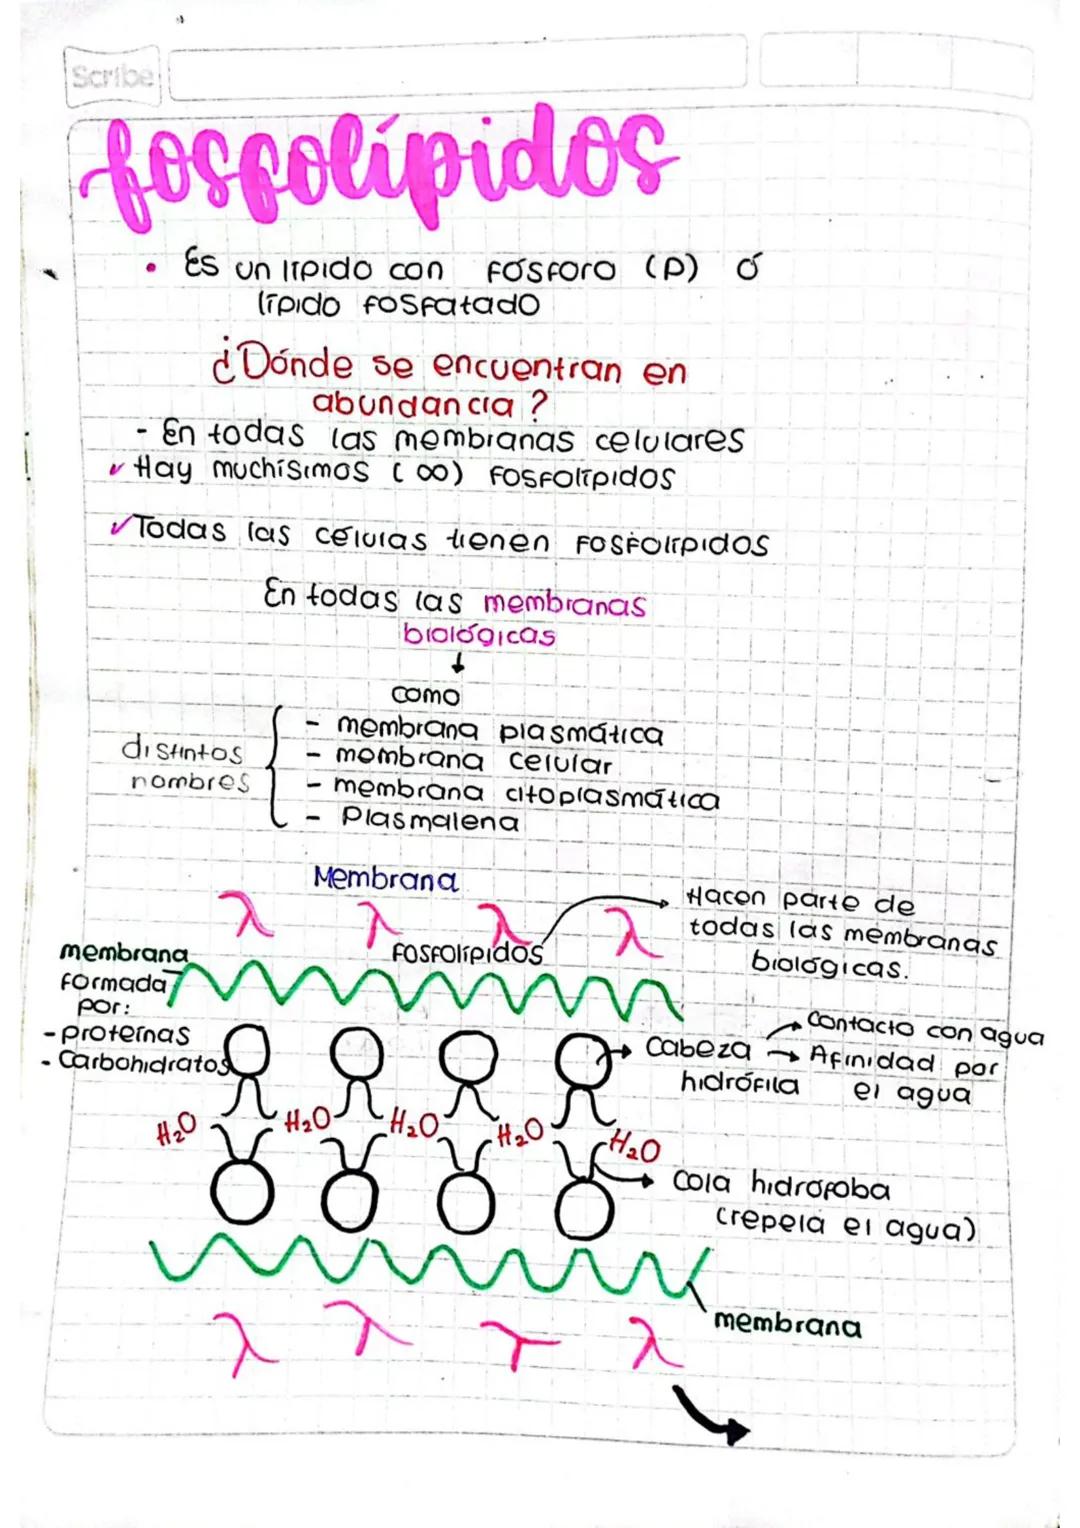 Scribe
fosfolípidos
• Es un lípido con fósforo (P) ó
lípido fosfatado
¿Dónde se encuentran en
abundancia?
- En todas las membranas celulares
✓ Hay muchísimos (∞) fosfolípidos
✓ Todas las células tienen fosfolípidos
En todas las membranas
biológicas
↓
como
distintos
nombres
- membrana plasmática
- membrana celular
- membrana citoplasmática
- Plasmalena
Membrana
Hacen parte de
todas las membranas
biológicas.
fosfolípidos
membrana
formada
por:
- proteínas
- Carbohidratos
Cabeza
hidrófila
Contacto con agua
Afinidad por
el agua
H₂O H₂O H₂O H₂O H₂O
Cola hidrófoba
(repela el agua)
membrana